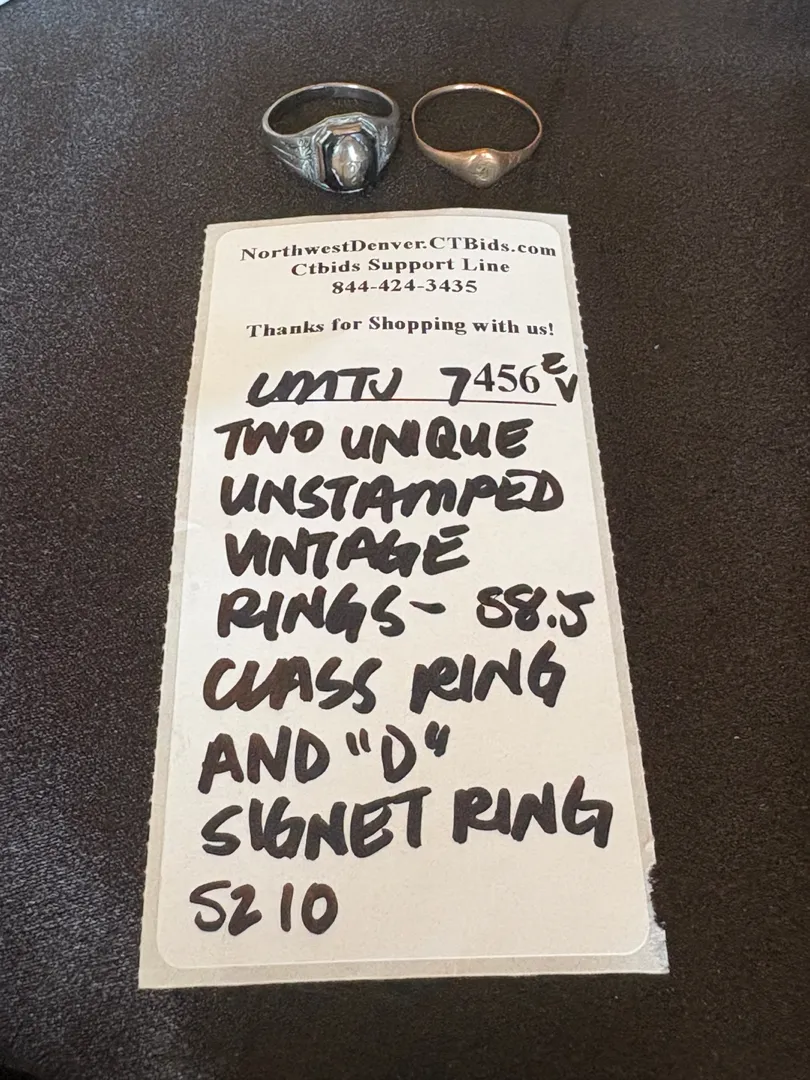 NorthwestDenver.CTBids.com
Ctbids Support Line
844-424-3435
Thanks for Shopping with us!
7456 EV
TWO UNIQUE
UNSTAMPED
VINTAGE
RINGS- S8.5
CLASS RING
AND "D"
SIGNET RING
SZ 10